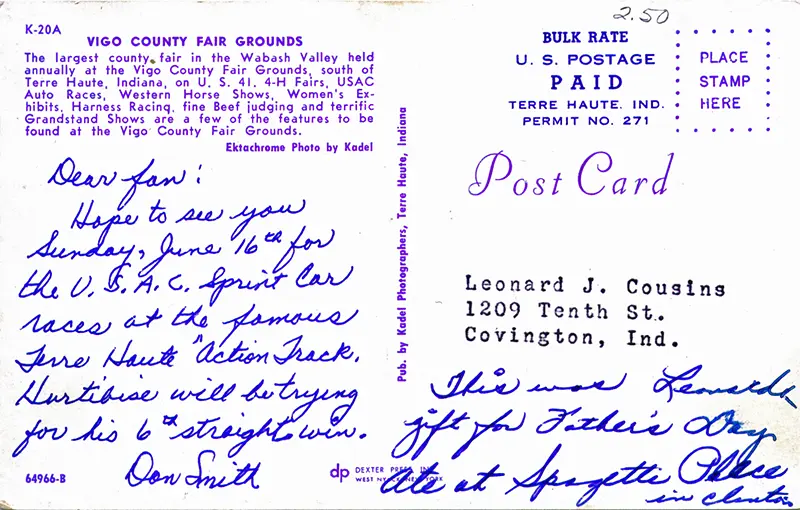 2.50
K-20A
VIGO COUNTY FAIR GROUNDS
The largest county fair in the Wabash Valley held
annually at the Vigo County Fair Grounds, south of
Terre Haute, Indiana, on U. S. 41. 4-H Fairs, USAC
Auto Races, Western Horse Shows, Women's Ex-
hibits, Harness Racing, fine Beef judging and terrific
Grandstand Shows are a few of the features to be
found at the Vigo County Fair Grounds.
Ektachrome Photo by Kadel
Dear fan:
Hope to see you
Sunday, June 16th for
the U.S.A.C. Sprint Car
races at the famous
Terre Haute "Action Track.
Hurtibise will be trying
for his 6th straight win.
Don Smith
64966-B
Pub. by Kadel Photographers, Terre Haute, Indiana
dp DEXTER PRESS, INC.
WEST NYACK, NEW YORK
BULK RATE
U. S. POSTAGE
PAID
TERRE HAUTE, IND.
PERMIT NO. 271
PLACE
STAMP
HERE
Post Card
Leonard J. Cousins
1209 Tenth St.
Covington, Ind.
This was Leonards
gift for Father's Day
Ate at Spagetti Place
in Clinton